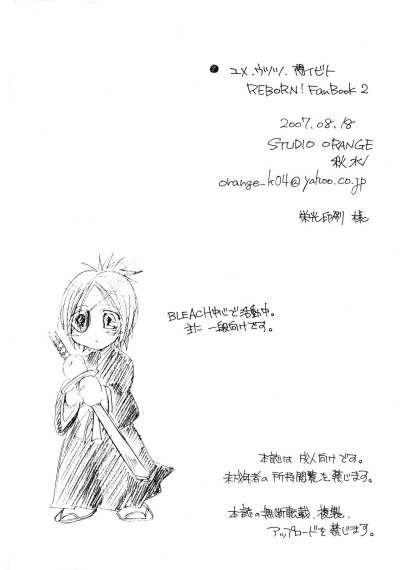 ユメ.ウツツ.
REBORN! FanBook 2
2007.08.18
STUDIO ORANGE
秋水
orange_k04@yahoo.co.jp
栄光印刷 様
BLEACH中心で活動中。
主に一般向けです。
本誌は成人向けです。
未成年者の所持閲覧を禁じます。
本誌の無断転載、複製、
アップロードを禁じます。